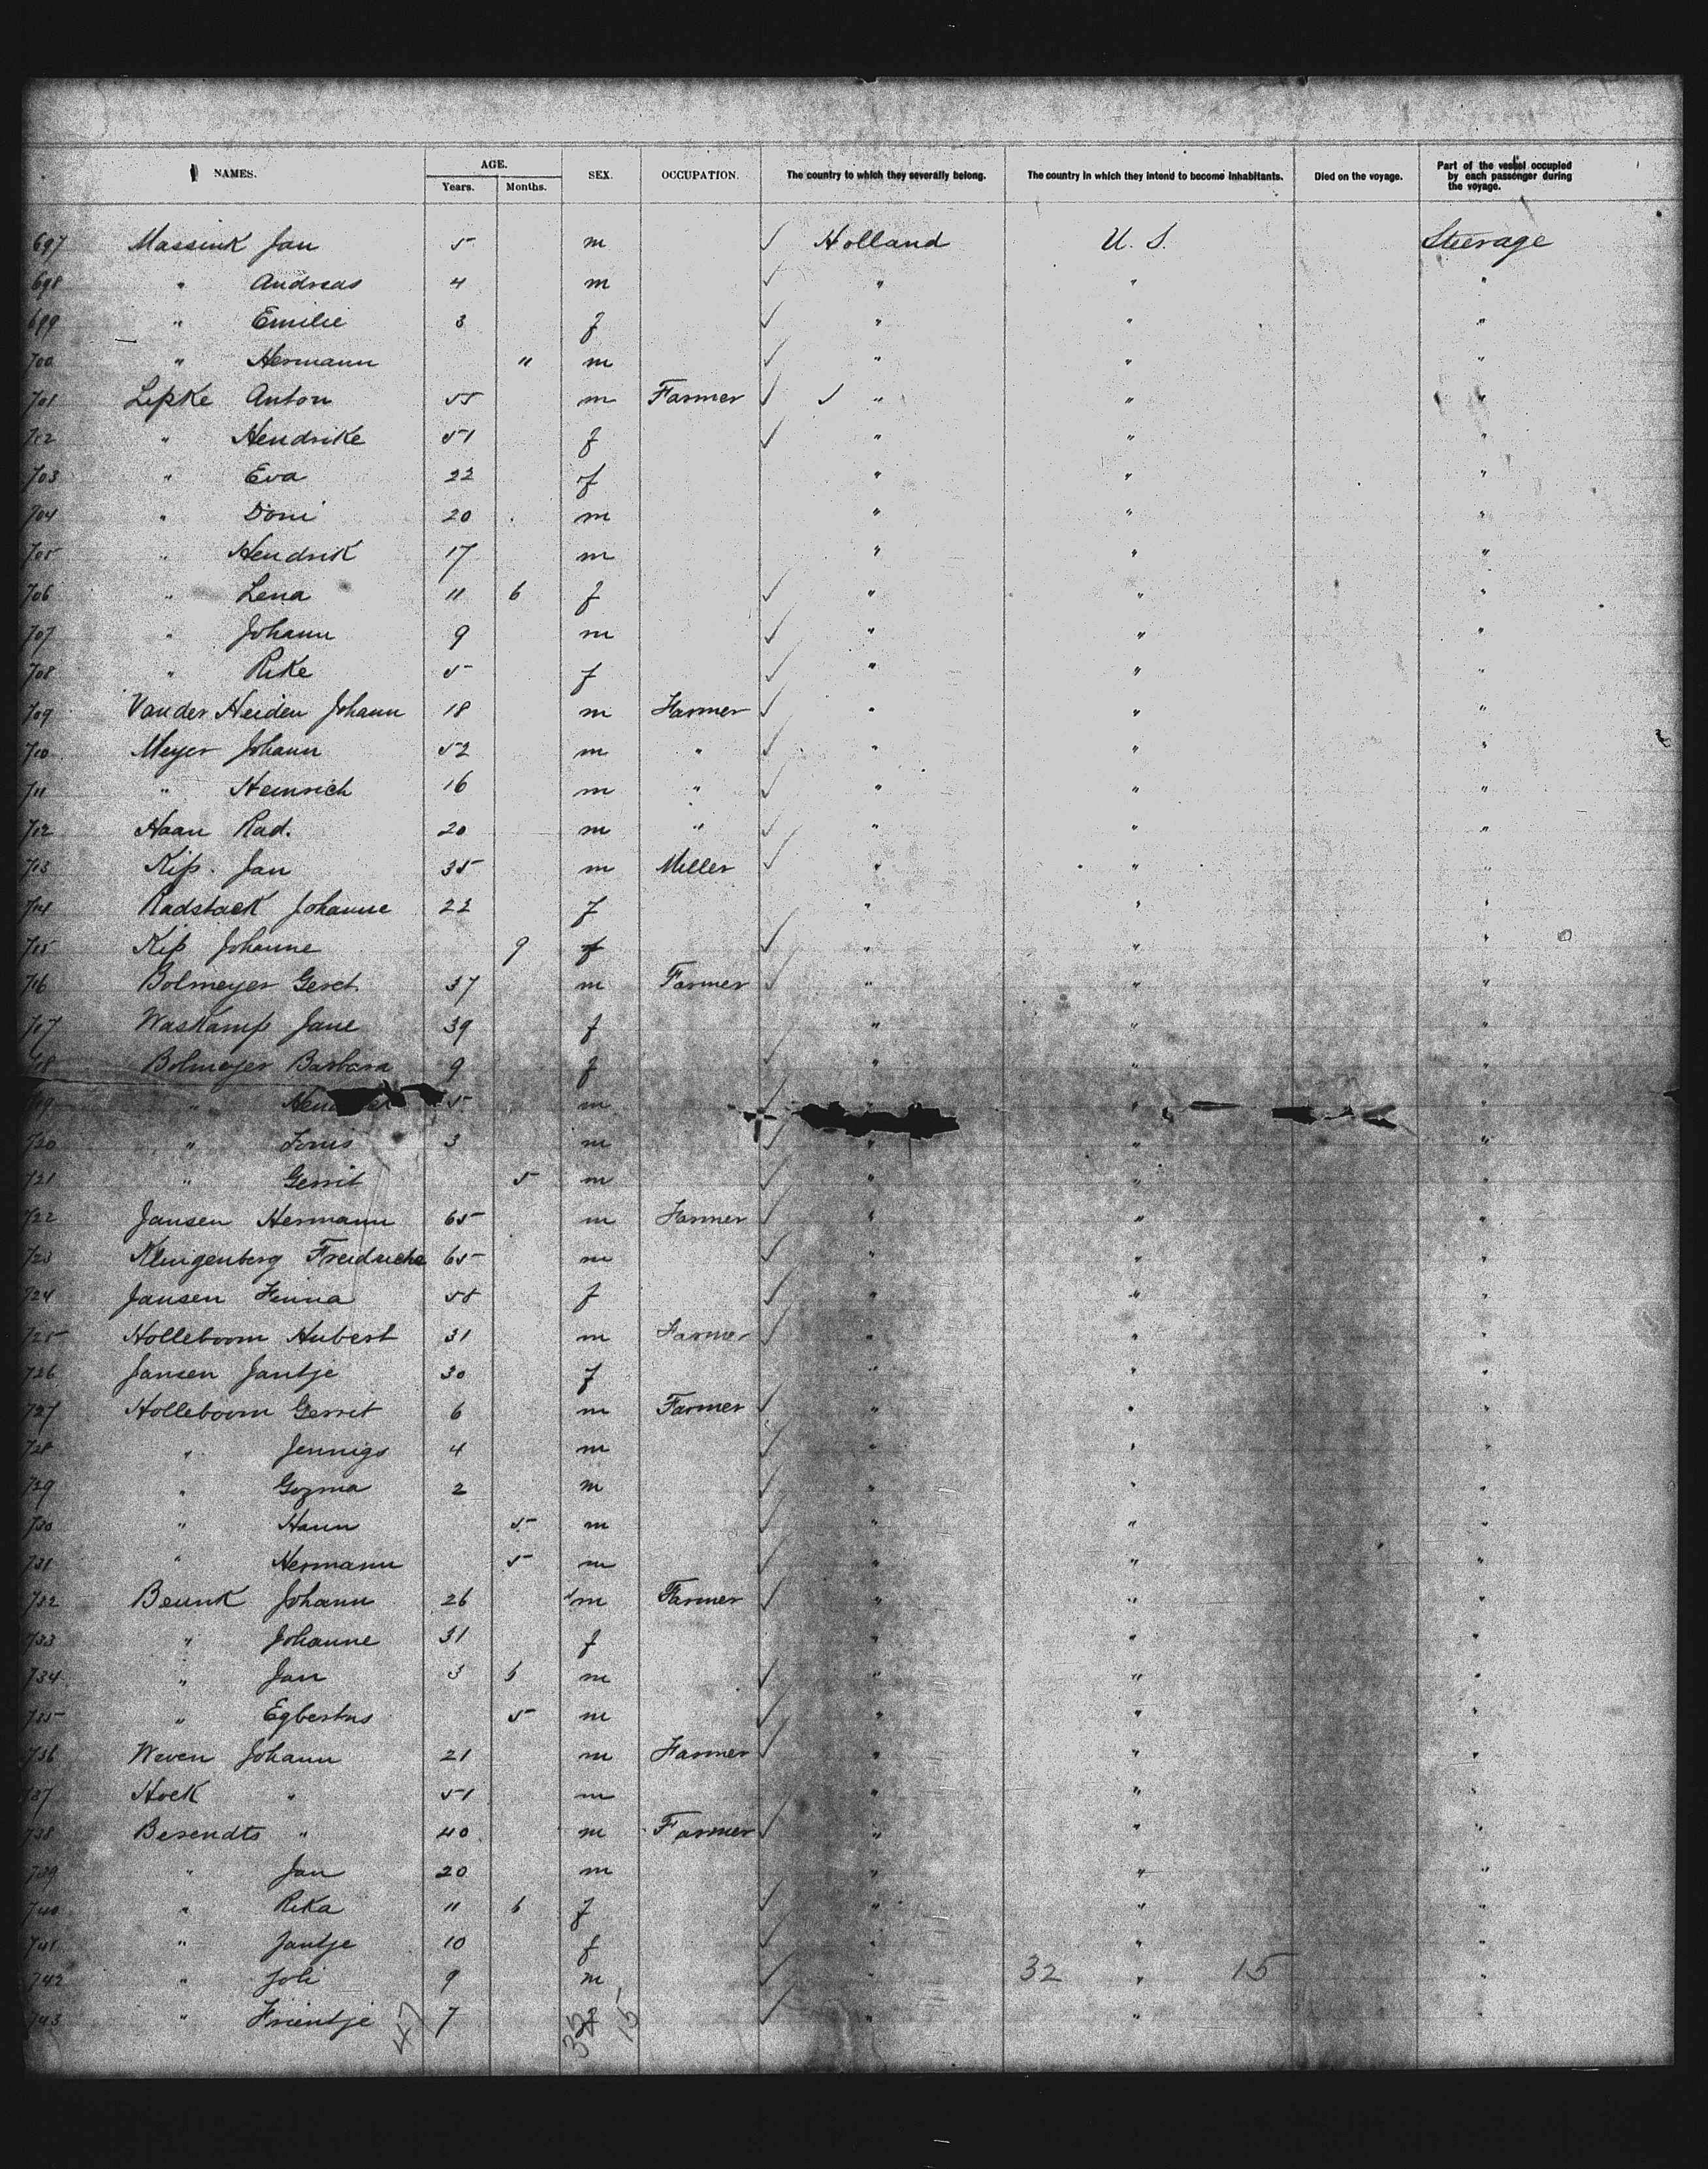 NAMES. AGE. Years. Months. SEX. OCCUPATION. The country to which they severally belong. The country in which they intend to become inhabitants. Died on the voyage. Part of the vessel occupied by each passenger during the voyage.
697 Massink Jan 5 m Holland U. S. Steerage
698 " Andreas 4 m " " "
699 " Emilie 3 f " " "
700 " Hermann " m " " "
701 Lipke Anton 55 m Farmer " " "
702 " Hendrike 51 f " " "
703 " Eva 22 f " " "
704 " Doni 20 m " " "
705 " Hendrik 17 m " " "
706 " Lena 11 6 f " " "
707 " Johann 9 m " " "
708 " Rike 5 f " " "
709 Vander Heiden Johann 18 m Farmer " " "
710 Meyer Johann 52 m " " " "
711 " Heinrich 16 m " " " "
712 Haan Rad. 20 m " " " "
713 Kip. Jan 35 m Miller " " "
714 Radstack Johanne 22 f " " "
715 Kip Johanne 9 f " " "
716 Bolmeyer Geret 37 m Farmer " " "
717 Waskamp Jane 39 f " " "
718 Bolmeyer Barbara 9 f " " "
719 " 5 m " " "
720 " Tonis 3 m " " "
721 " Gerrit 5 m " " "
722 Jansen Hermann 65 m Farmer " " "
723 Klingenberg Freidriche 65 m " " "
724 Jansen Finna 58 f " " "
725 Holleboom Hubert 31 m Farmer " " "
726 Jansen Jantje 30 f " " "
727 Holleboom Gerrit 6 m Farmer " " "
728 " Jennigs 4 m " " "
729 " Gozma 2 m " " "
730 " Hann 5 m " " "
731 " Hermann 5 m " " "
732 Beunk Johann 26 m Farmer " " "
733 " Johanne 31 f " " "
734 " Jan 3 6 m " " "
735 " Egbertus 5 m " " "
736 Weven Johann 21 m Farmer " " "
737 Hoek " 51 m " " "
738 Berendts " 40 m Farmer " " "
739 " Jan 20 m " " "
740 " Rika 11 6 f " " "
741 " Jantje 10 f " " "
742 " Joli 9 m " 32 " 15 "
743 " Frientje 7 f " " "
47 32 15